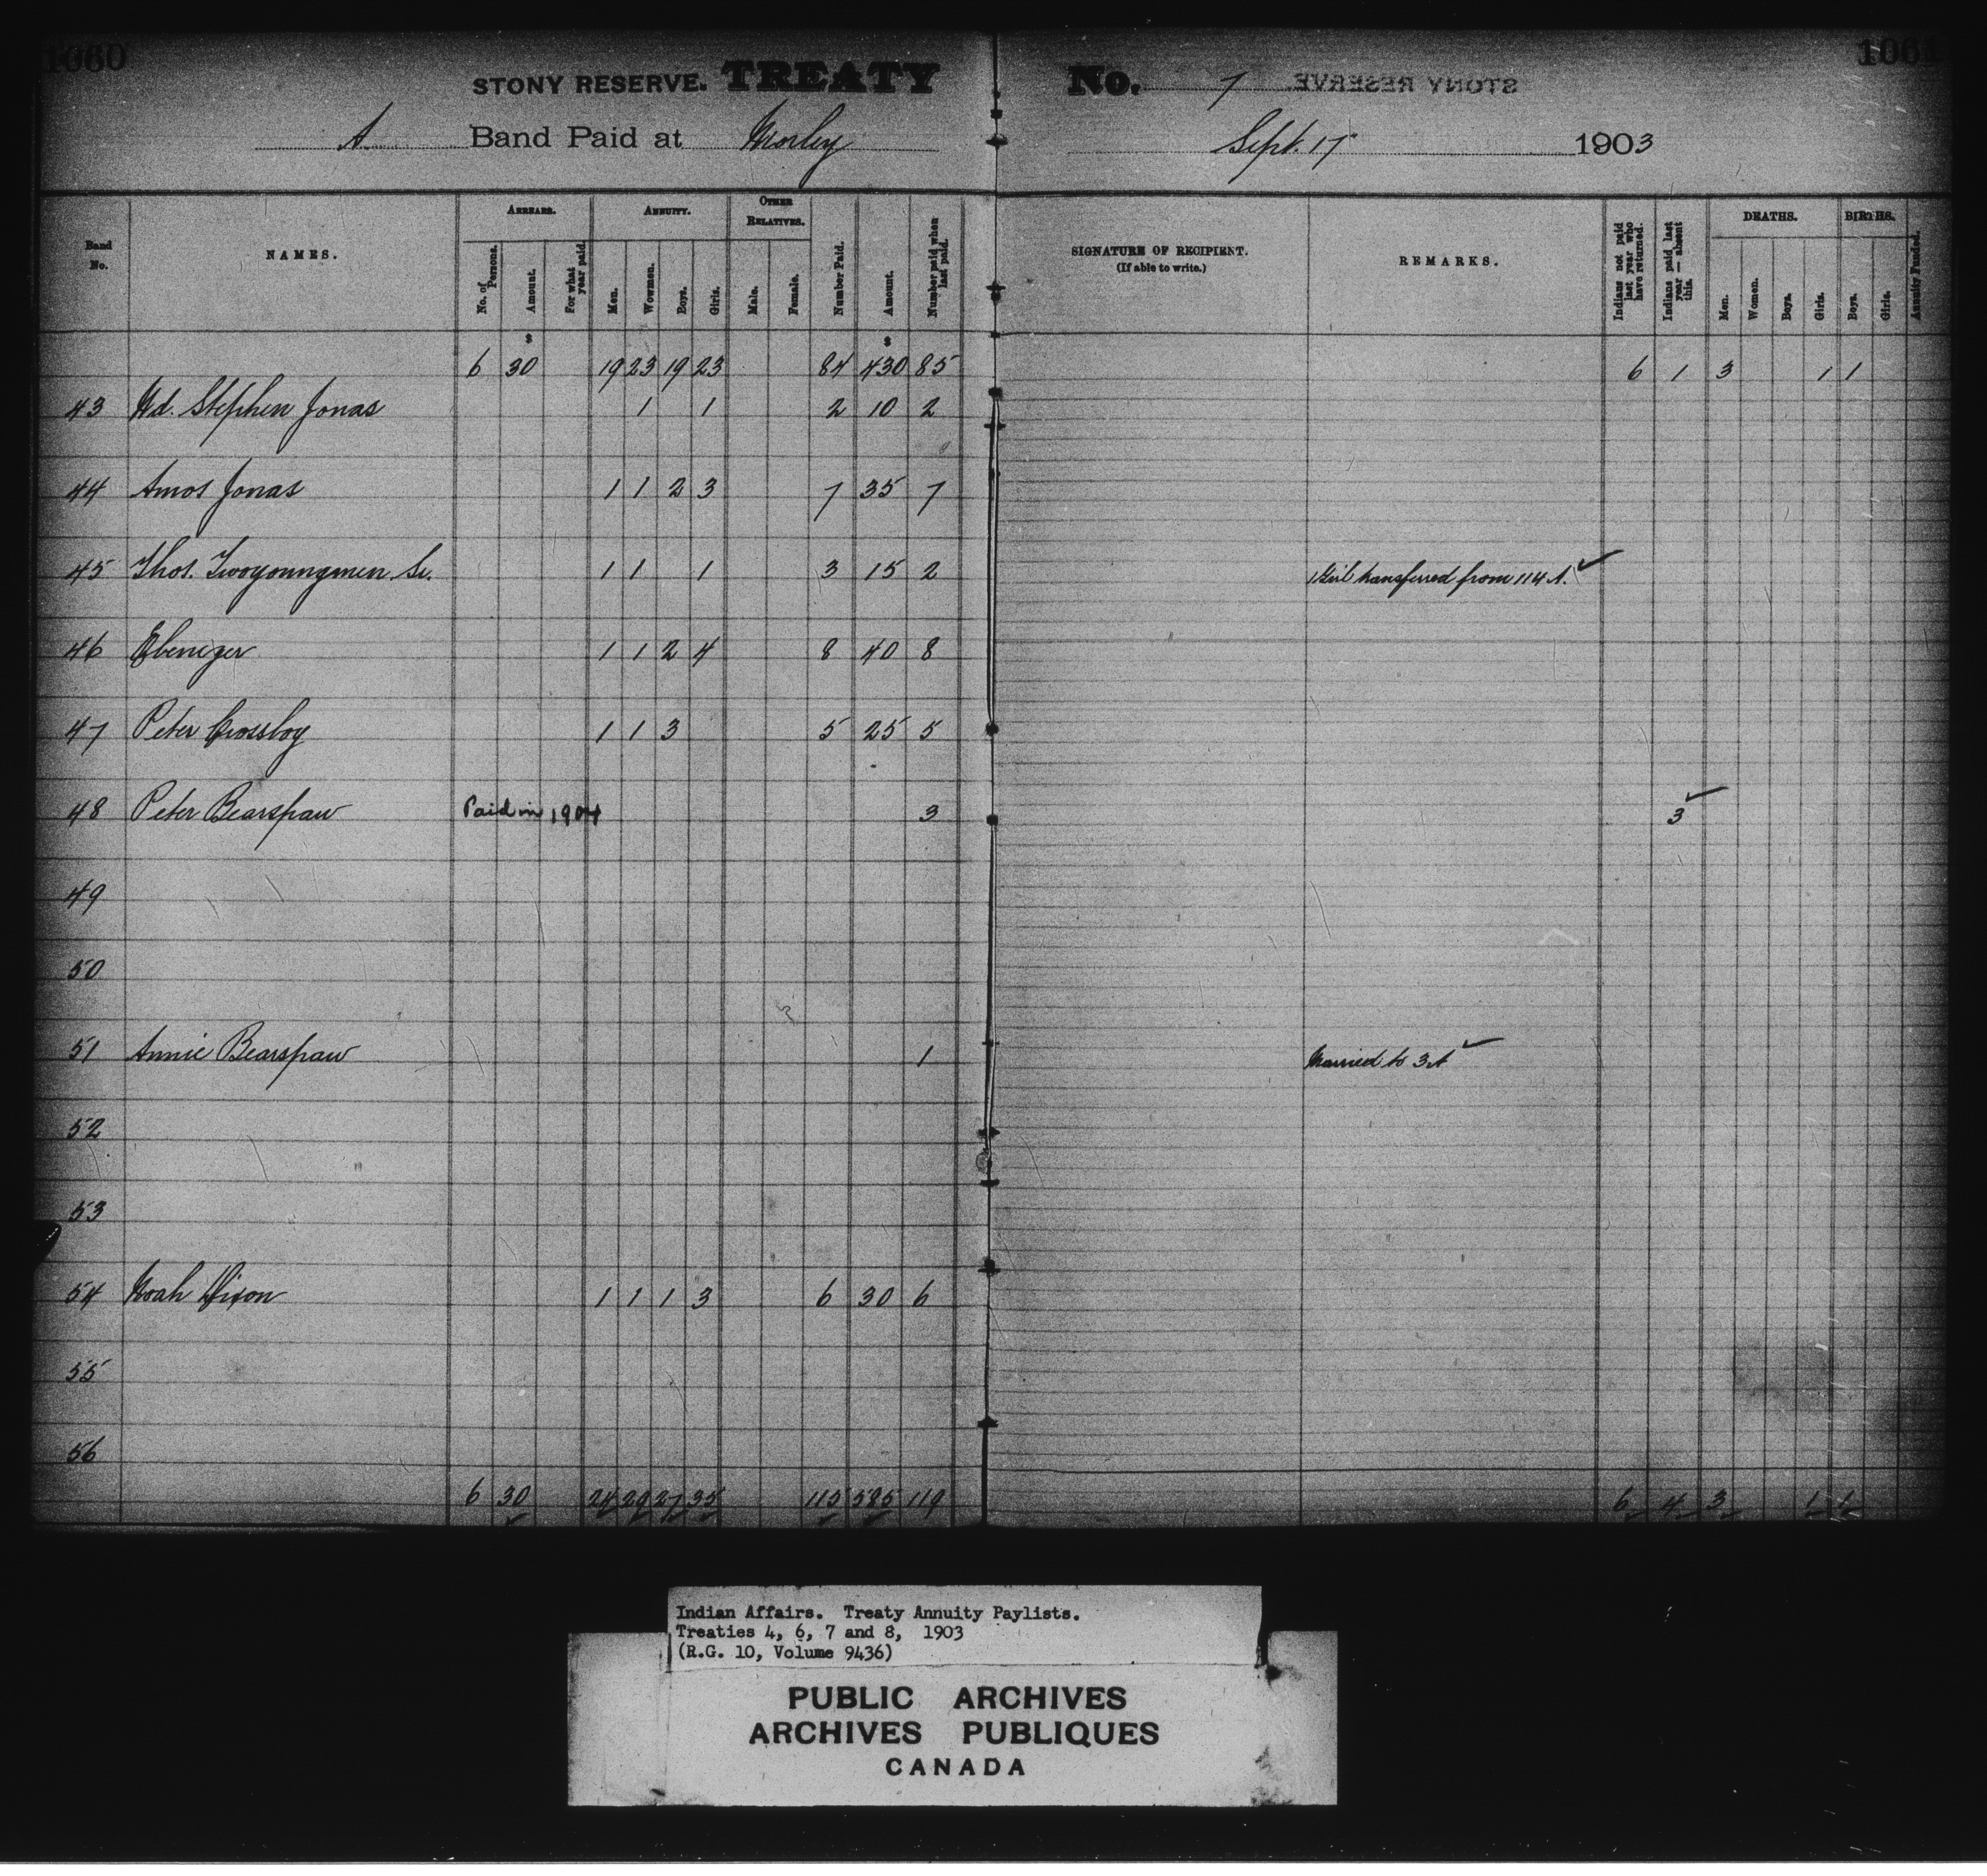 1060 1061
STONY RESERVE. TREATY No. 7 STONY RESERVE
A Band Paid at Morley Sept. 17 1903
Band No. NAMES. ARREARS. No. of Persons. Amount. For what year paid. ANNUITY. Men. Wowmen. Boys. Girls. OTHER RELATIVES. Male. Female. Number Paid. Amount. Number paid when last paid. SIGNATURE OF RECIPIENT. (If able to write.) REMARKS. Indians not paid last year who have returned. Indians paid last year — absent this. DEATHS. Men. Women. Boys. Girls. BIRTHS. Boys. Girls. Annuity Funded.
$ $
6 30 19 23 19 23 84 430 85 6 1 3 1 1
43 Wd. Stephen Jonas 1 1 2 10 2
44 Amos Jonas 1 1 2 3 7 35 7
45 Thos. Twoyoungmen Sr. 1 1 1 3 15 2 1 Girl transferred from 114 A.
46 Ebenezer 1 1 2 4 8 40 8
47 Peter Crossboy 1 1 3 5 25 5
48 Peter Bearspaw Paid in 1904 3 3
49
50
51 Annie Bearspaw 1 Married to 3 A
52
53
54 Noah Dixon 1 1 1 3 6 30 6
55
56
6 30 24 29 27 35 115 585 119 6 4 3 1 1
Indian Affairs. Treaty Annuity Paylists.
Treaties 4, 6, 7 and 8, 1903
(R.G. 10, Volume 9436)
PUBLIC ARCHIVES
ARCHIVES PUBLIQUES
CANADA